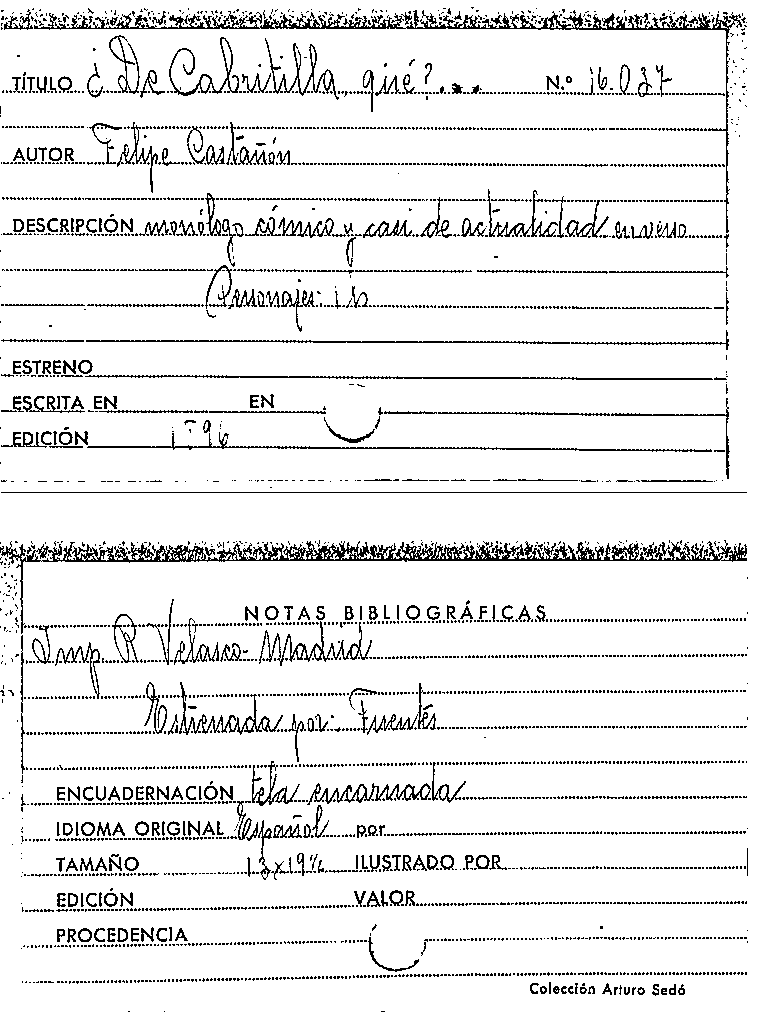 TÍTULO ¿De Cabritilla, qué?... N.º 16.037
AUTOR Felipe Castañón
DESCRIPCIÓN monólogo cómico y casi de actualidad en verso
Personajes: 1 h
ESTRENO
ESCRITA EN EN
EDICIÓN
NOTAS BIBLIOGRÁFICAS
Imp R Velasco - Madrid
Estrenada por: Fuentes
ENCUADERNACIÓN tela encarnada
IDIOMA ORIGINAL Español por
TAMAÑO ILUSTRADO POR
EDICIÓN VALOR
PROCEDENCIA
Colección Arturo Sedó